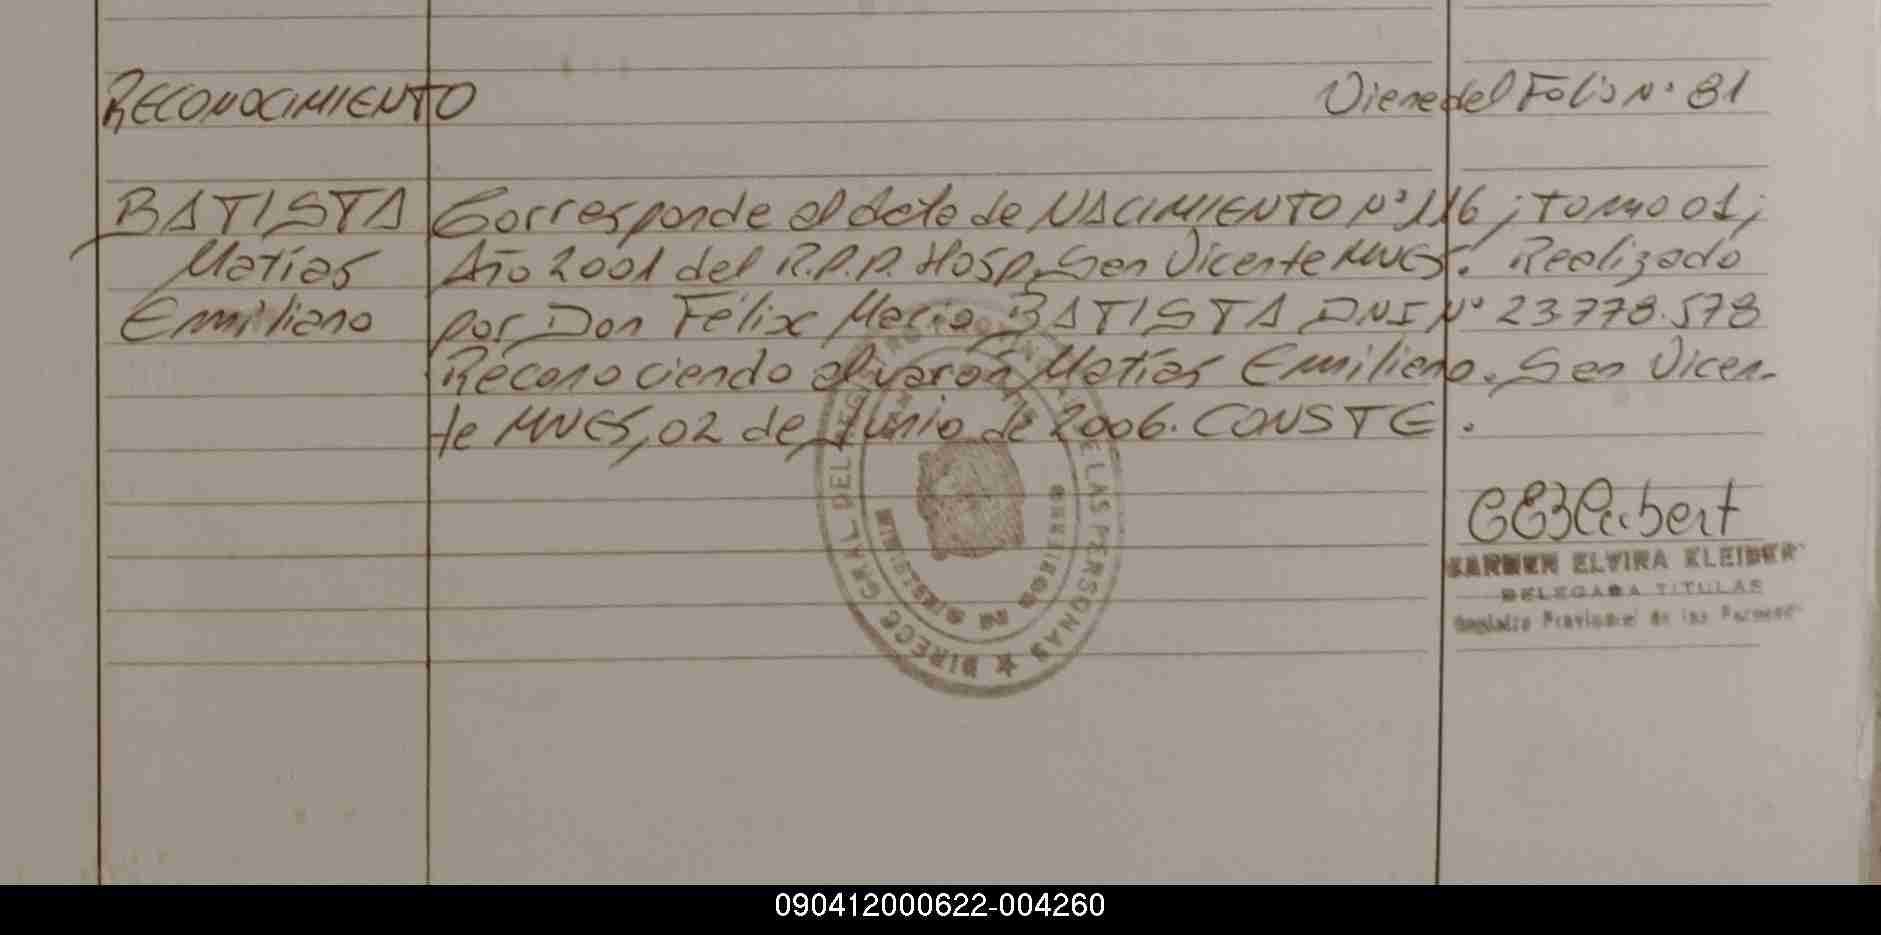 RECONOCIMIENTO
Viene del Folio N° 81
BATISTA
Matías
Emiliano
Corresponde al Acta de NACIMIENTO N° 116; TOMO 01;
Año 2001 del R.P.P. Hosp. San Vicente MNES. Realizado
por Don Félix Mario BATISTA DNI N° 23.778.578
Reconociendo al varón Matías Emiliano. San Vicen-
te MNES, 02 de Junio de 2006. CONSTE.
CARMEN ELVIRA KLEIBER
DELEGADA TITULAR
Registro Provincial de las Personas
DIRECC GRAL DEL REGISTRO PROVINCIAL DE LAS PERSONAS
MINISTERIO DE GOBIERNO
090412000622-004260